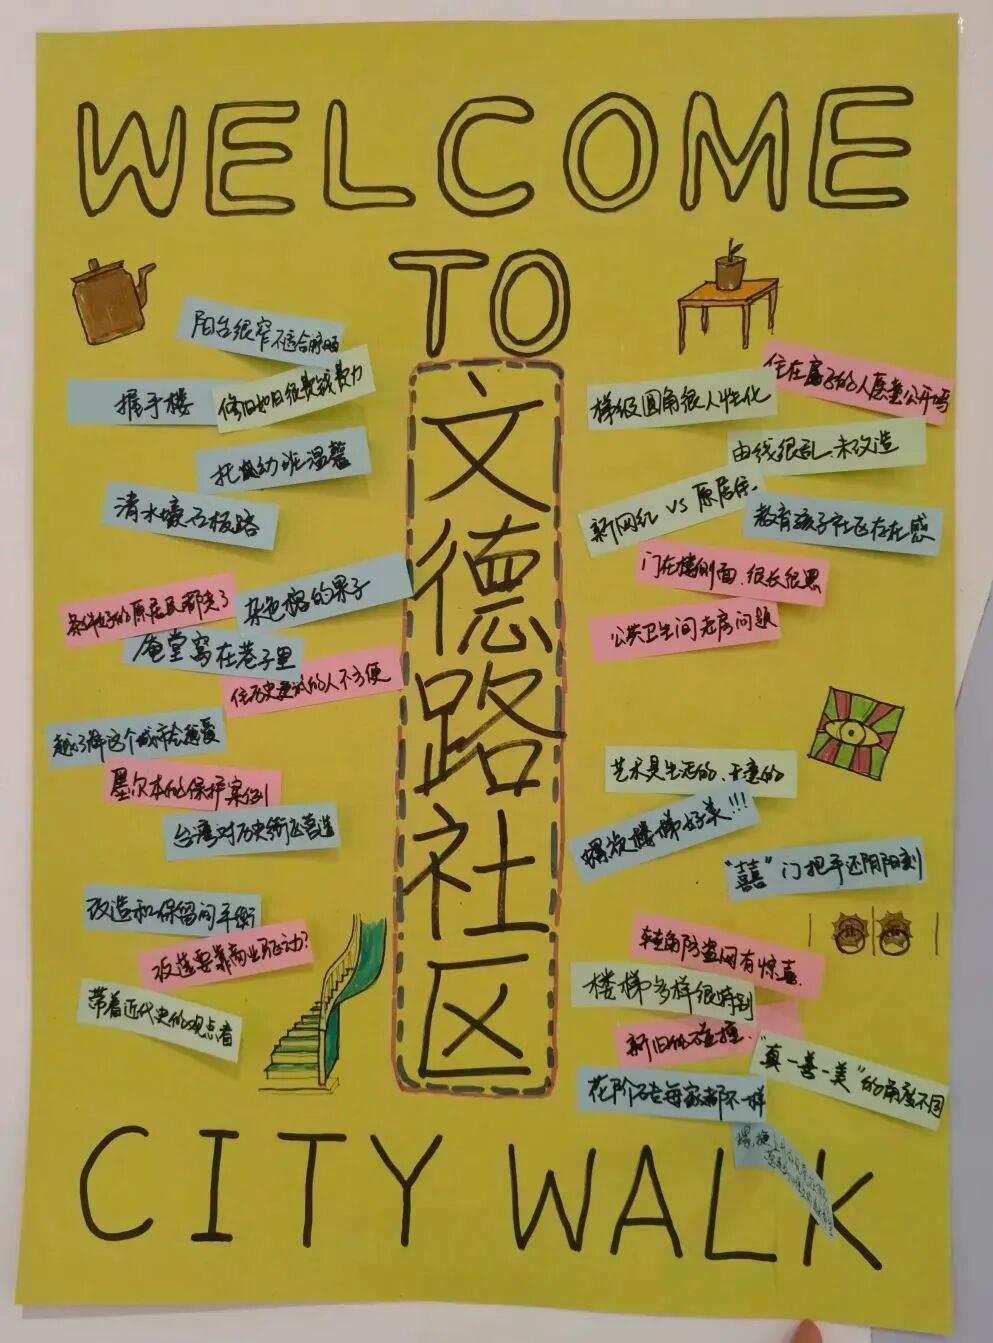 WELCOME
TO
文德路社区
阳台很窄不适合晾晒
握手楼
修旧如旧很费钱费力
托派幼班温馨
清水濠石板路
条件好的原居民都走了
杂色楼的果子
庵堂窝在巷子里
住历史建筑的人不方便
越了解这个城市会越爱
墨尔本的保护案例
台湾对历史街区营造
改造和保留间平衡
改造要靠商业驱动?
带着近代史的观点看
梯级圆角很人性化
住在房子的人愿意公开吗
电线很乱、未改造
新网红 VS 原居住
教育孩子社区存在感
门在楼侧面、很长很黑
公共卫生间老房问题
艺术是生活的、无意的
螺旋楼梯好美!!!
“囍”门把手还阴阳刻
转角防盗网有惊喜.
楼梯多样很特别
新旧的碰撞.
“真-善-美”的角度不同
花阶砖每家都不一样
CITY WALK